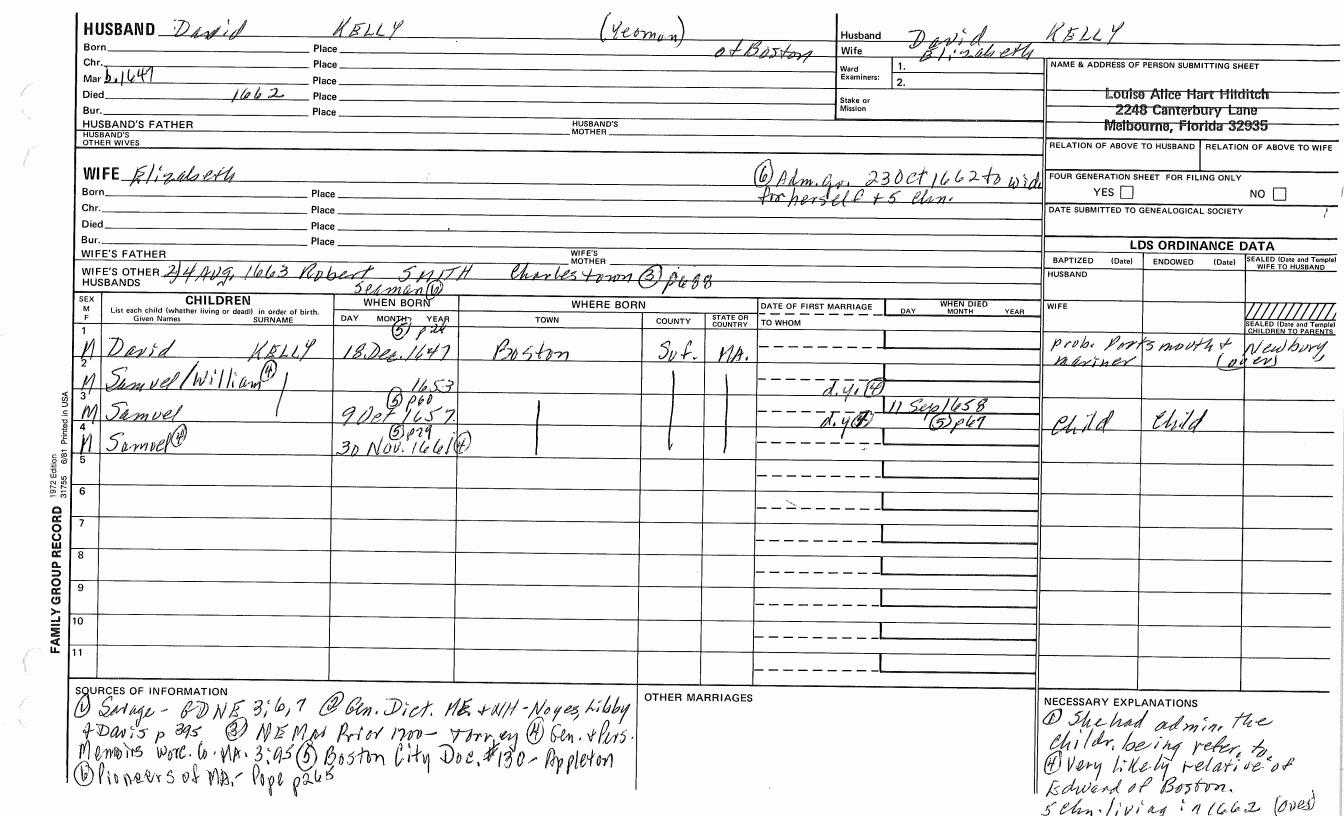 HUSBAND David KELLY (Yeoman)
Born Place of Boston
Chr. Place
Mar b. 1647 Place
Died 1662 Place
Bur. Place
HUSBAND'S FATHER HUSBAND'S MOTHER
HUSBAND'S OTHER WIVES
Husband David KELLY
Wife Elizabeth
Ward Examiners: 1.
2.
Stake or Mission
NAME & ADDRESS OF PERSON SUBMITTING SHEET
Louise Alice Hart Hilditch
2248 Canterbury Lane
Melbourne, Florida 32935
RELATION OF ABOVE TO HUSBAND RELATION OF ABOVE TO WIFE
FOUR GENERATION SHEET FOR FILING ONLY
YES NO
DATE SUBMITTED TO GENEALOGICAL SOCIETY
WIFE Elizabeth
⑥ Adm. gr. 23 Oct 1662 to wid.
for herself + 5 chn.
Born Place
Chr. Place
Died Place
Bur. Place
WIFE'S FATHER WIFE'S MOTHER
WIFE'S OTHER HUSBANDS 2) 4 Aug. 1663 Robert SMITH Charlestown ③ p688
Seaman ⑥
LDS ORDINANCE DATA
BAPTIZED (Date) ENDOWED (Date) SEALED (Date and Temple) WIFE TO HUSBAND
HUSBAND
WIFE
SEALED (Date and Temple) CHILDREN TO PARENTS
SEX M F CHILDREN WHEN BORN WHERE BORN DATE OF FIRST MARRIAGE WHEN DIED
List each child (whether living or dead) in order of birth.
Given Names SURNAME DAY MONTH YEAR TOWN COUNTY STATE OR COUNTRY TO WHOM DAY MONTH YEAR
⑤ p24
1 M David KELLY 18 Dec. 1647 Boston Suf. MA. prob. Portsmouth + Newbury,
mariner (over)
2 M Samuel/William ④ 1653 d.y. ④
⑤ p60
3 M Samuel 9 Oct 1657 d.y. ④ 11 Sep 1658 ⑤ p67 Child Child
⑤ p79
4 M Samuel ④ 30 Nov. 1661 ④
5
6
7
8
9
10
11
FAMILY GROUP RECORD 1972 Edition 31755 6/81 Printed in USA
SOURCES OF INFORMATION
① Savage - GDNE 3; 6, 7 ② Gen. Dict. ME. + NH - Noyes, Libby
+ Davis p 395 ③ NE Mar Prior 1700 - Torrey ④ Gen. + Pers.
Memoirs Worc. Co. MA. 3:95 ⑤ Boston City Doc. #130 - Appleton
⑥ Pioneers of MA. - Pope p265
OTHER MARRIAGES
NECESSARY EXPLANATIONS
① She had admin. the
childr. being refer. to.
④ Very likely relative of
Edward of Boston.
5 chn. living in 1662 (over)